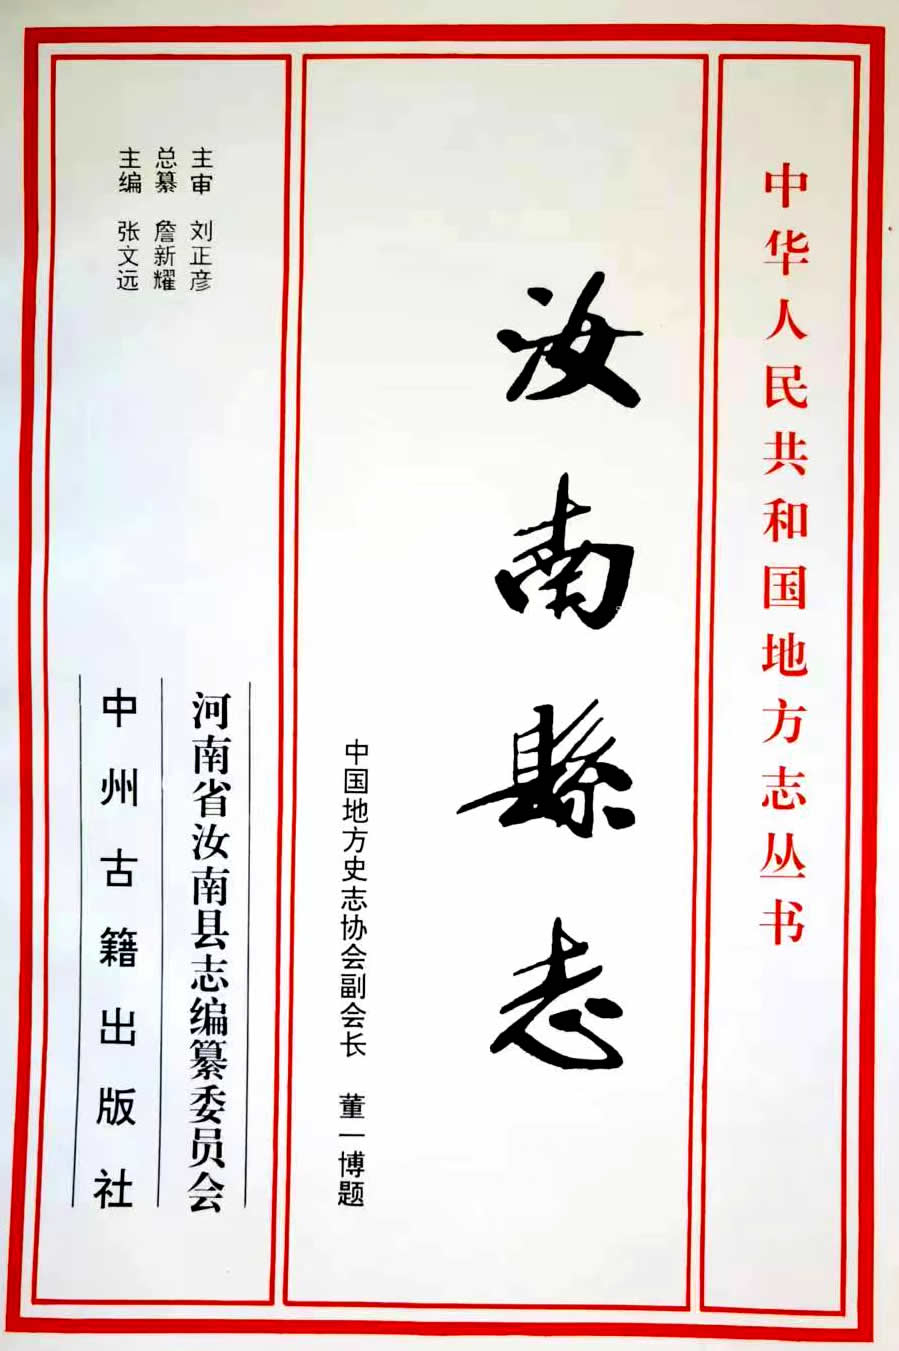 中华人民共和国地方志丛书
汝南縣志
中国地方史志协会副会长 董一博题
主审 刘正彦
总纂 詹新耀
主编 张文远
河南省汝南县志编纂委员会
中州古籍出版社